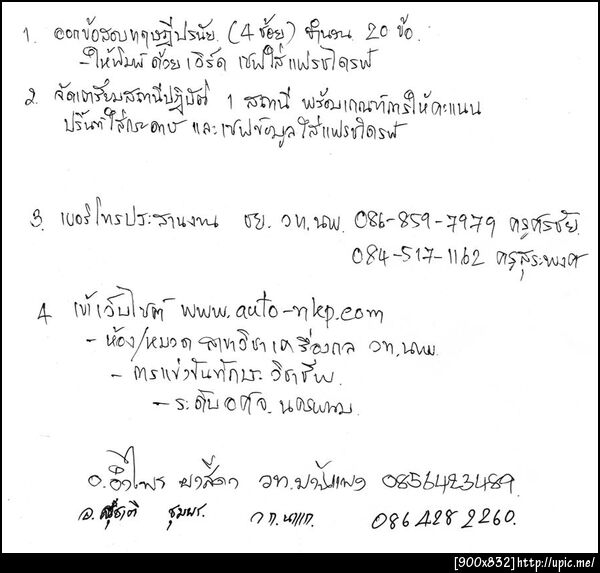 1. ออกข้อสอบทฤษฎีปรนัย (4 ช้อย) จำนวน 20 ข้อ
-ให้พิมพ์ด้วยเวิร์ด เซฟใส่แฟรชไดรฟ์
2. จัดเตรียมสถานีปฏิบัติ 1 สถานี พร้อมเกณฑ์การให้คะแนน
ปริ้นท์ใส่กระดาษ และเซฟข้อมูลใส่แฟรชไดรฟ์
3. เบอร์โทรประสานงาน ชย. วท.นพ. 086-859-7979 ครูศรชัย
084-517-1162 ครูสุระพงศ์
4 เข้าเว็บไซต์ www.auto-nkp.com
- ห้อง/หมวด สาขาวิชาเครื่องกล วท.นพ.
- การแข่งขันทักษะวิชาชีพ
- ระดับ อศจ. นครพนม
อ.อำไพร วท. 0856423489.
อ. ชุมพร. วก.นาแก. 086 428 2260.
[900x832] http://upic.me/